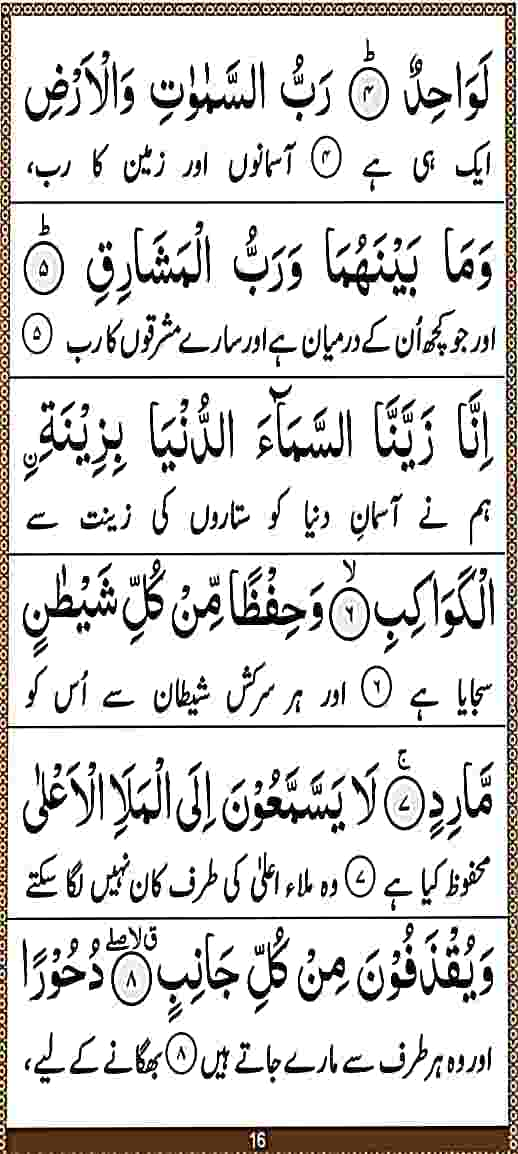 لَوَاحِدٌ ﴿۴﴾ؕ رَبُّ السَّمٰوٰتِ وَالْاَرْضِ
ایک ہی ہے ﴿۴﴾ آسمانوں اور زمین کا رب،
وَمَا بَیْنَهُمَا وَرَبُّ الْمَشَارِقِ ﴿۵﴾ؕ
اور جو کچھ اُن کے درمیان ہے اور سارے مشرقوں کا رب ﴿۵﴾
اِنَّا زَیَّنَّا السَّمَآءَ الدُّنْیَا بِزِیْنَةِ ِۨ
ہم نے آسمانِ دنیا کو ستاروں کی زینت سے
الْكَوَاكِبِ ﴿۶﴾ۙ وَحِفْظًا مِّنْ كُلِّ شَیْطٰنٍ
سجایا ہے ﴿۶﴾ اور ہر سرکش شیطان سے اُس کو
مَّارِدٍ ﴿۷﴾ۚ لَا یَسَّمَّعُوْنَ اِلَی الْمَلَاِ الْاَعْلٰی
محفوظ کیا ہے ﴿۷﴾ وہ ملاء اعلیٰ کی طرف کان نہیں لگا سکتے
وَیُقْذَفُوْنَ مِنْ كُلِّ جَانِبٍ ﴿۸﴾ ق لا صلے دُحُوْرًا
اور وہ ہر طرف سے مارے جاتے ہیں ﴿۸﴾ بھگانے کے لیے،
16